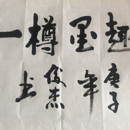 一樽墨趣
庚子年俊杰书